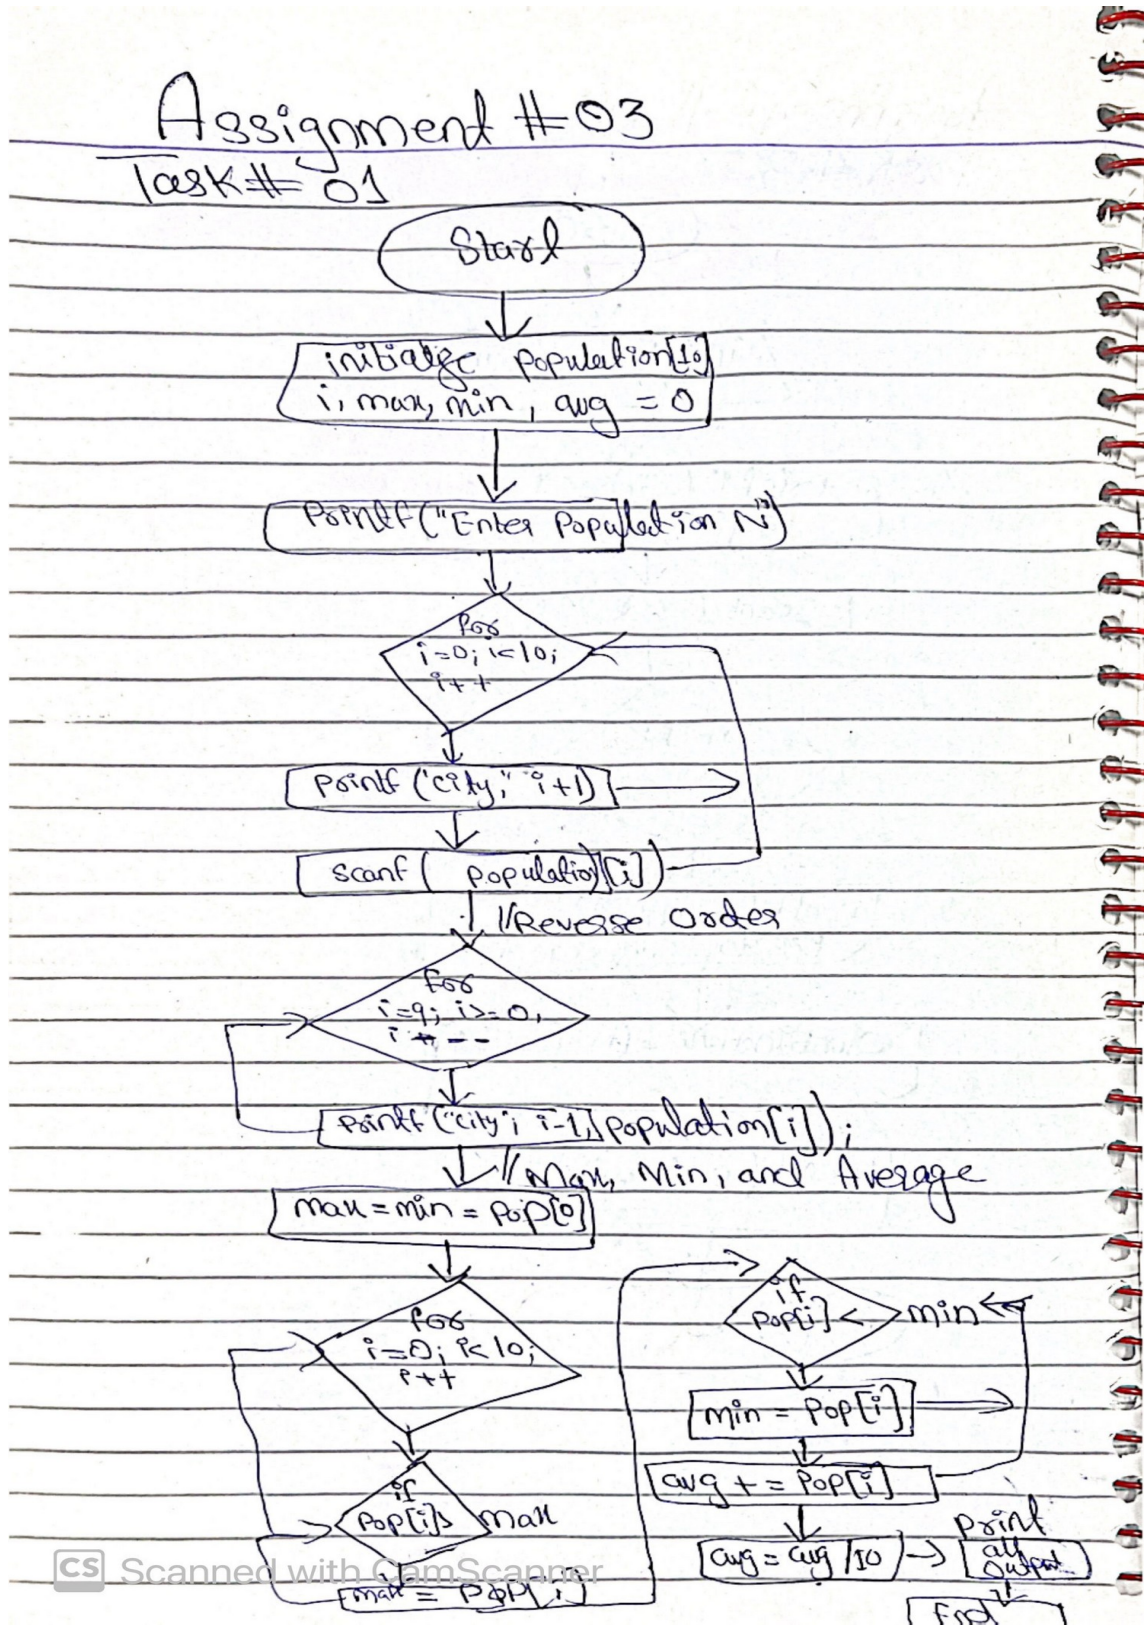 Assignment #03
Task# 01
Start
initialize population[10]
i, max, min, avg = 0
Printf("Enter Population N")
for
i=0; i<10;
i++
Printf("City," i+1)
Scanf( population[i])
//Reverse Order
for
i=9; i>=0,
i--
Printf("City", i-1, population[i]);
//Max, Min, and Average
max = min = pop[0]
for
i=0; i<10;
i++
if
Pop[i]> max
max = Pop[i]
if
Pop[i]< min
min = Pop[i]
avg += Pop[i]
avg = avg/10
print
all
Output
End
CS Scanned with CamScanner